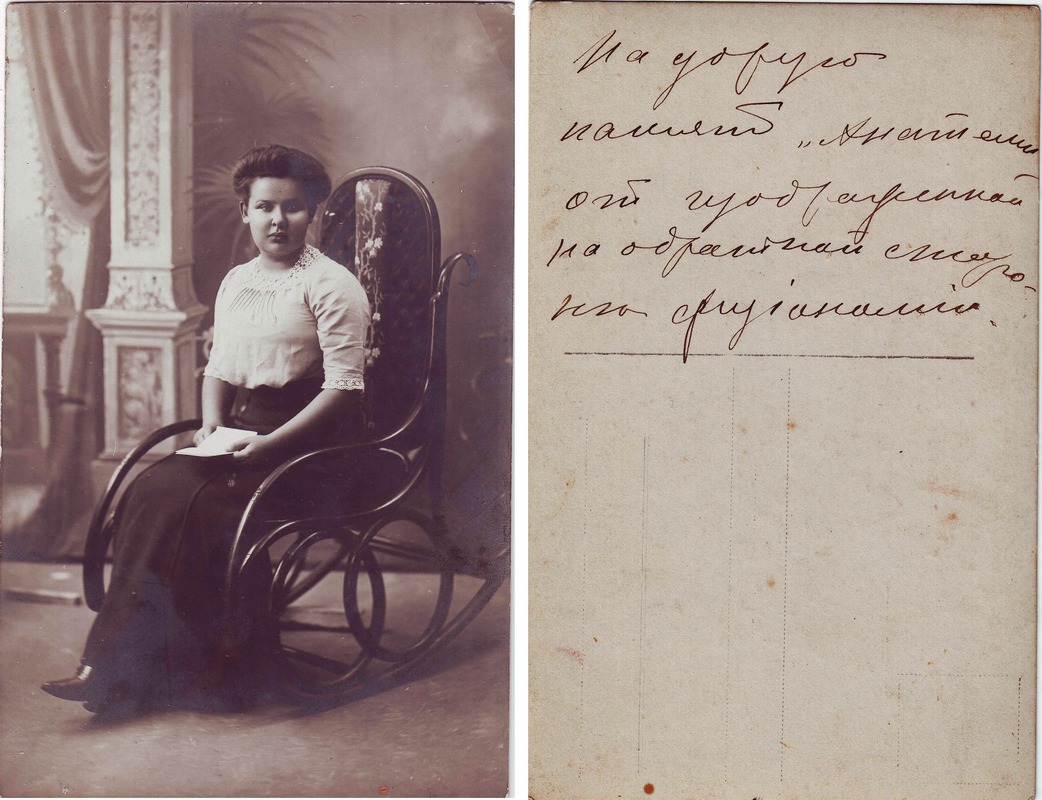 На добрую
память
от изображенной
на обратной сторо-
нѣ физіономіи.